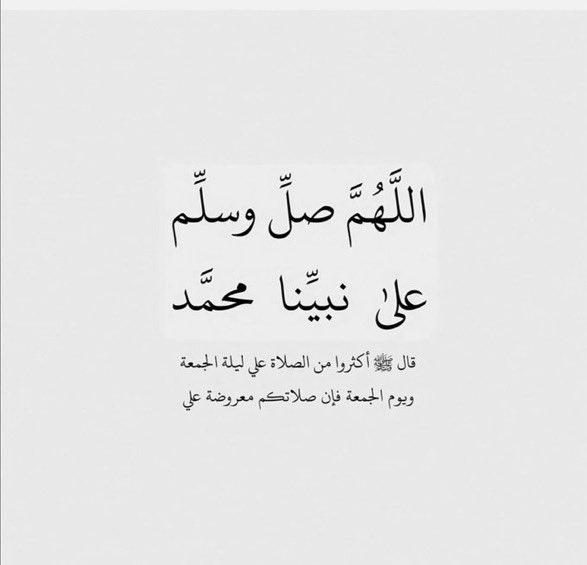 اللَّهُمَّ صلِّ وسلِّم
علىٰ نبيِّنا محمَّد
قال ﷺ أكثروا من الصلاة علي ليلة الجمعة
ويوم الجمعة فإن صلاتكم معروضة علي